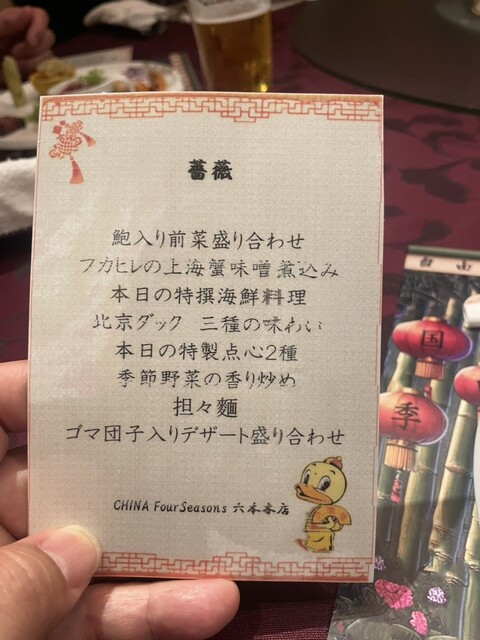 薔薇
鮑入り前菜盛り合わせ
フカヒレの上海蟹味噌煮込み
本日の特撰海鮮料理
北京ダック 三種の味わい
本日の特製点心2種
季節野菜の香り炒め
担々麺
ゴマ団子入りデザート盛り合わせ
CHINA FourSeasons 六本木店
自由
国
季